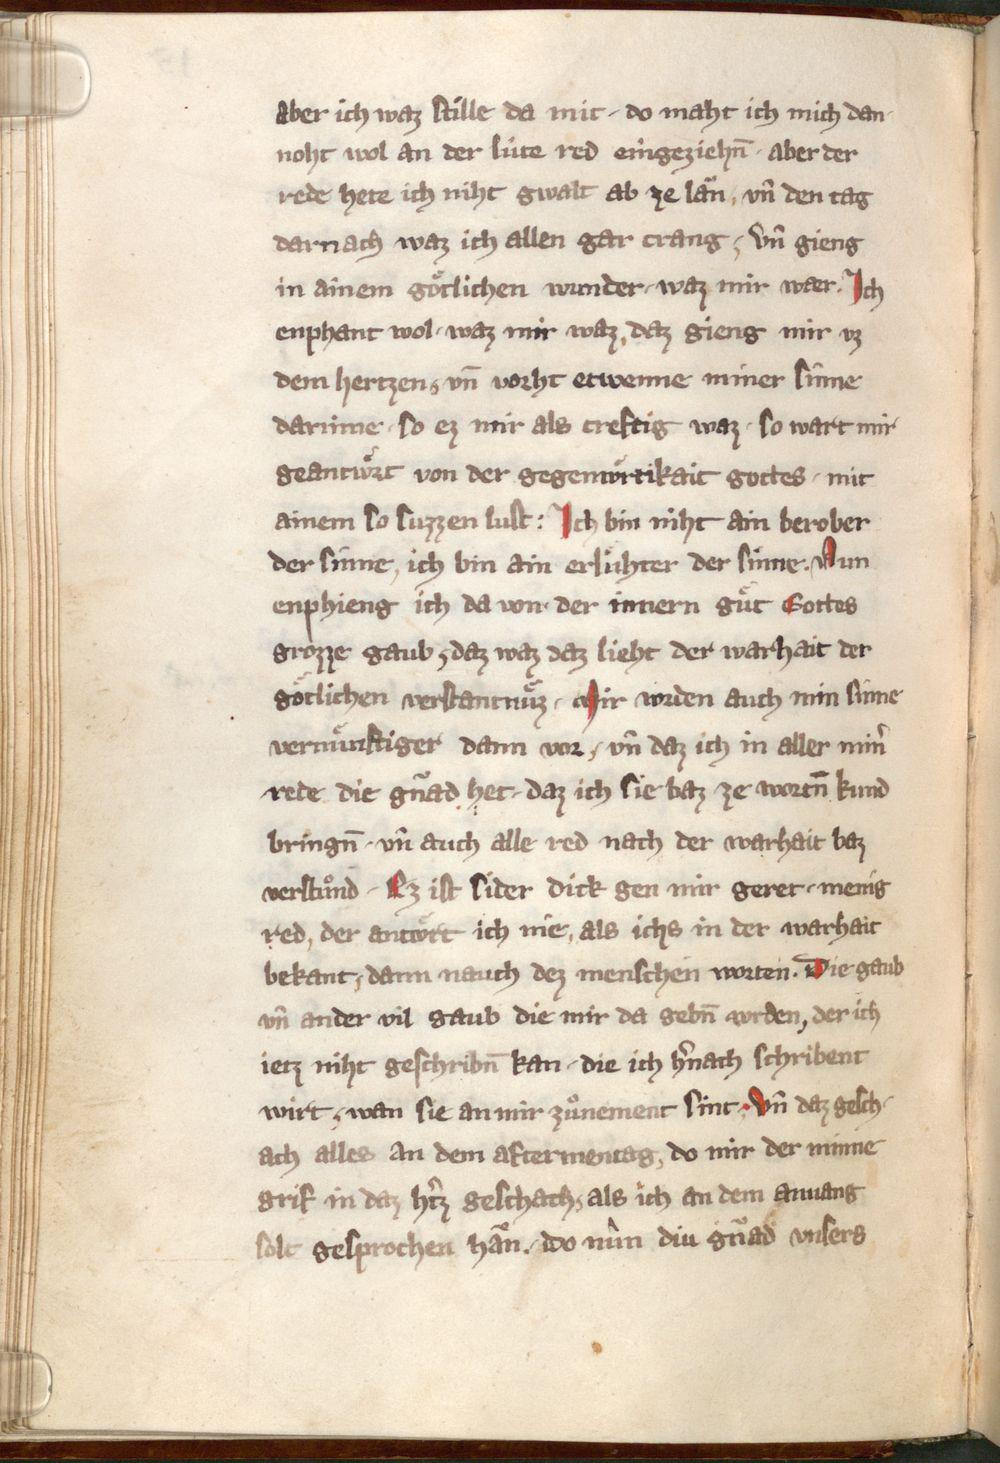 aber ich waz stille da mit · do maht ich mich dan-
noht wol an der lúte red eingeziehn̄ · aber der
rede hete ich niht gwalt ab ze lān, vn̄ den tag
darnach waz ich allen gar crang, vn̄ gieng
in ainem goͤtlichen wunder · waz mir waer. Ich
enphant wol · waz mir waz, daz gieng mir vz
dem hertzen, vn̄ vorht etwenne miner sinne
darūme · so ez mir als creftig waz · so wart mir
geantwͤrt von der gegenwͤrtikait gottes · mit
ainem so suzzen lust: Ich bin niht ain berober
der sinne, ich bin ain erlúhter der sinne. Nun
enphieng ich da von der innern guͤt Gottes
grozze gaub, daz waz daz lieht der warhait der
goͤtlichen verstantnuͤz · Mir wrden auch min sinne
vernuͤnftiger dann vor, vn̄ daz ich in aller min̄
rede die gnād het · daz ich sie baz ze wortn̄ kund
bringn̄ · vn̄ auch alle red nach der warhait baz
verstuͦnd · Ez ist sider dick gen mir geret · menig
red, der antwͤrt ich nie, als ichs in der warhait
bekant, dann nauch dez menschen worten. Die gaub
vn̄ ander vil gaub die mir da gebn̄ wrden, der ich
ietz niht geschribn̄ kan · die ich h̄nach schribent
wirt, wan sie an mir zuͦnement sint. Vn̄ daz gesch-
ach alles an dem aftermentag, do mir der minne
grif in daz h̄tz geschach, als ich an dem anuang
solt gesprochen hān. do mim diu gnād vnsers